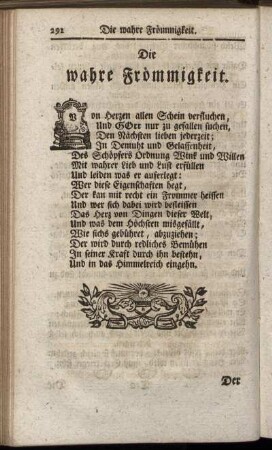 292 Die wahre Frömmigkeit.
Die
wahre Frömmigkeit.
Von Herzen allen Schein verfluchen,
Und GOtt nur zu gefallen suchen,
Den Nächsten lieben jederzeit;
In Demuht und Gelassenheit,
Des Schöpfers Ordnung Wink und Willen
Mit wahrer Lieb und Lust erfüllen
Und leiden was er auferlegt:
Wer diese Eigenschaften hegt,
Der kan mit recht ein Frommer heissen
Und wer sich dabei wird befleissen
Das Herz von Dingen dieser Welt,
Und was dem Höchsten misgefällt,
Wie sichs gebühret, abzuziehen;
Der wird durch redliches Bemühen
In seiner Kraft durch ihn bestehn,
Und in das Himmelreich eingehn.
Der